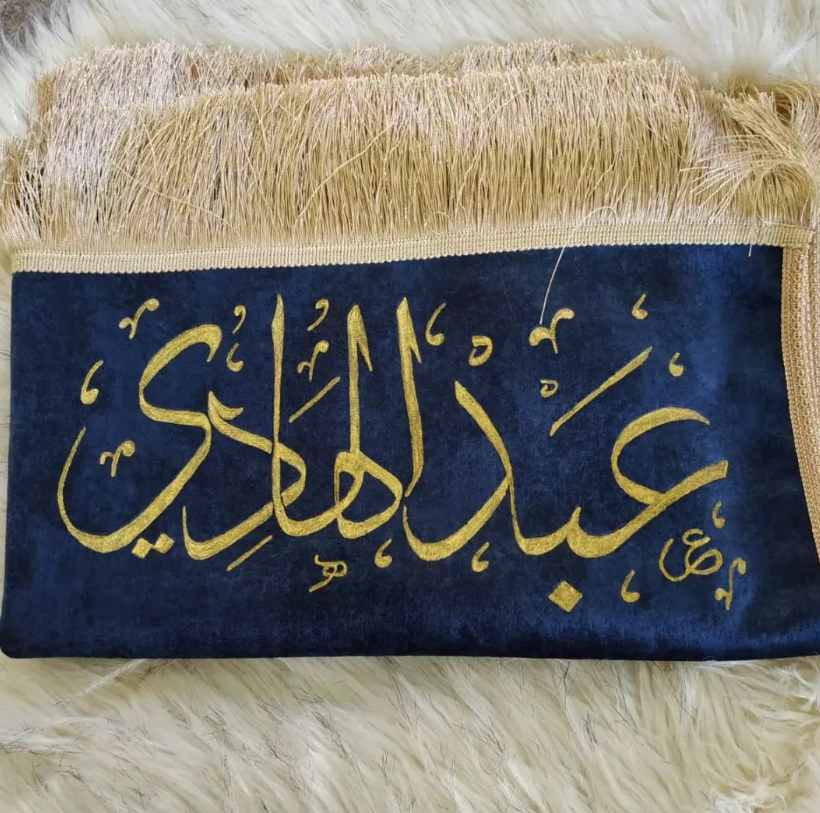 عبد الهادي